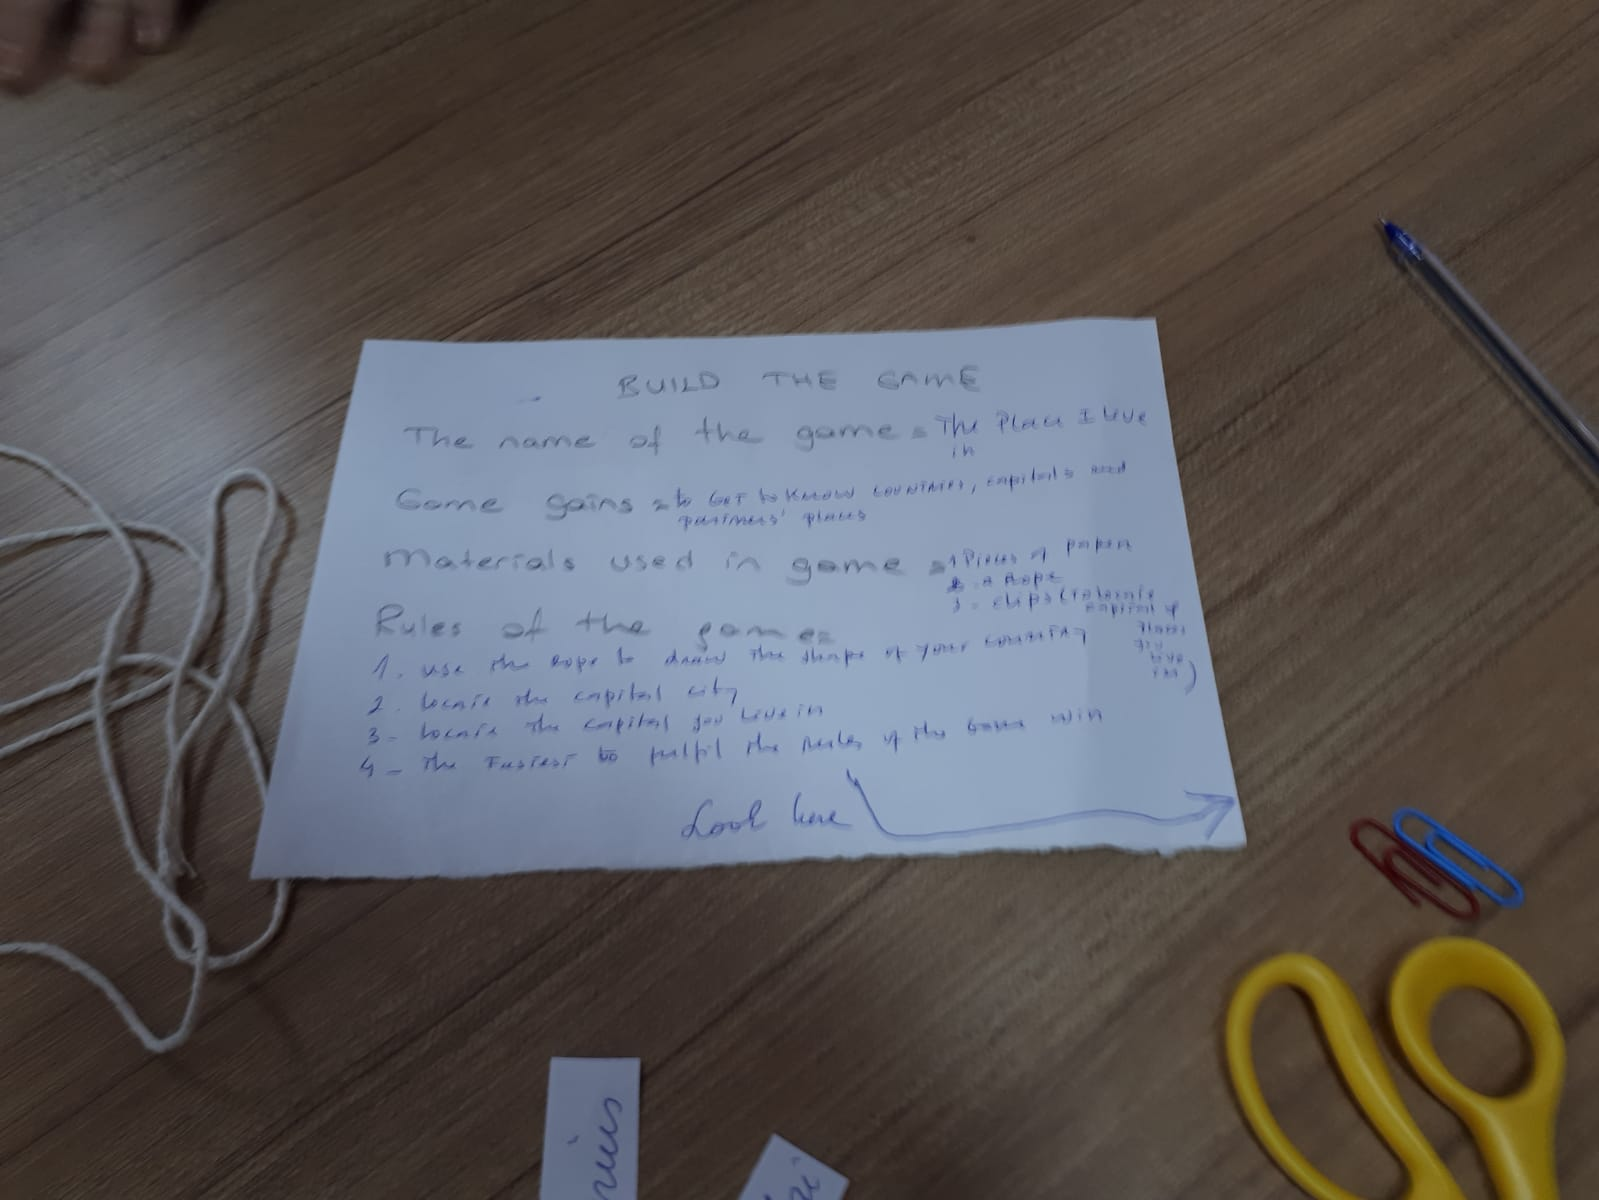 BUILD THE GAME
The name of the game = The Place I live
in
Game gains = to Get to know countries, capitals and
partners' places
Materials used in game = 1 Pieces of paper
2 - a Rope
3 - clips (to locate
capital &
places
you
live
in)
Rules of the game =
1. use the rope to draw the shape of your country
2. locate the capital city
3 - locate the capital you live in
4 - The Fastest to fulfil the rules of the Game win
Look here